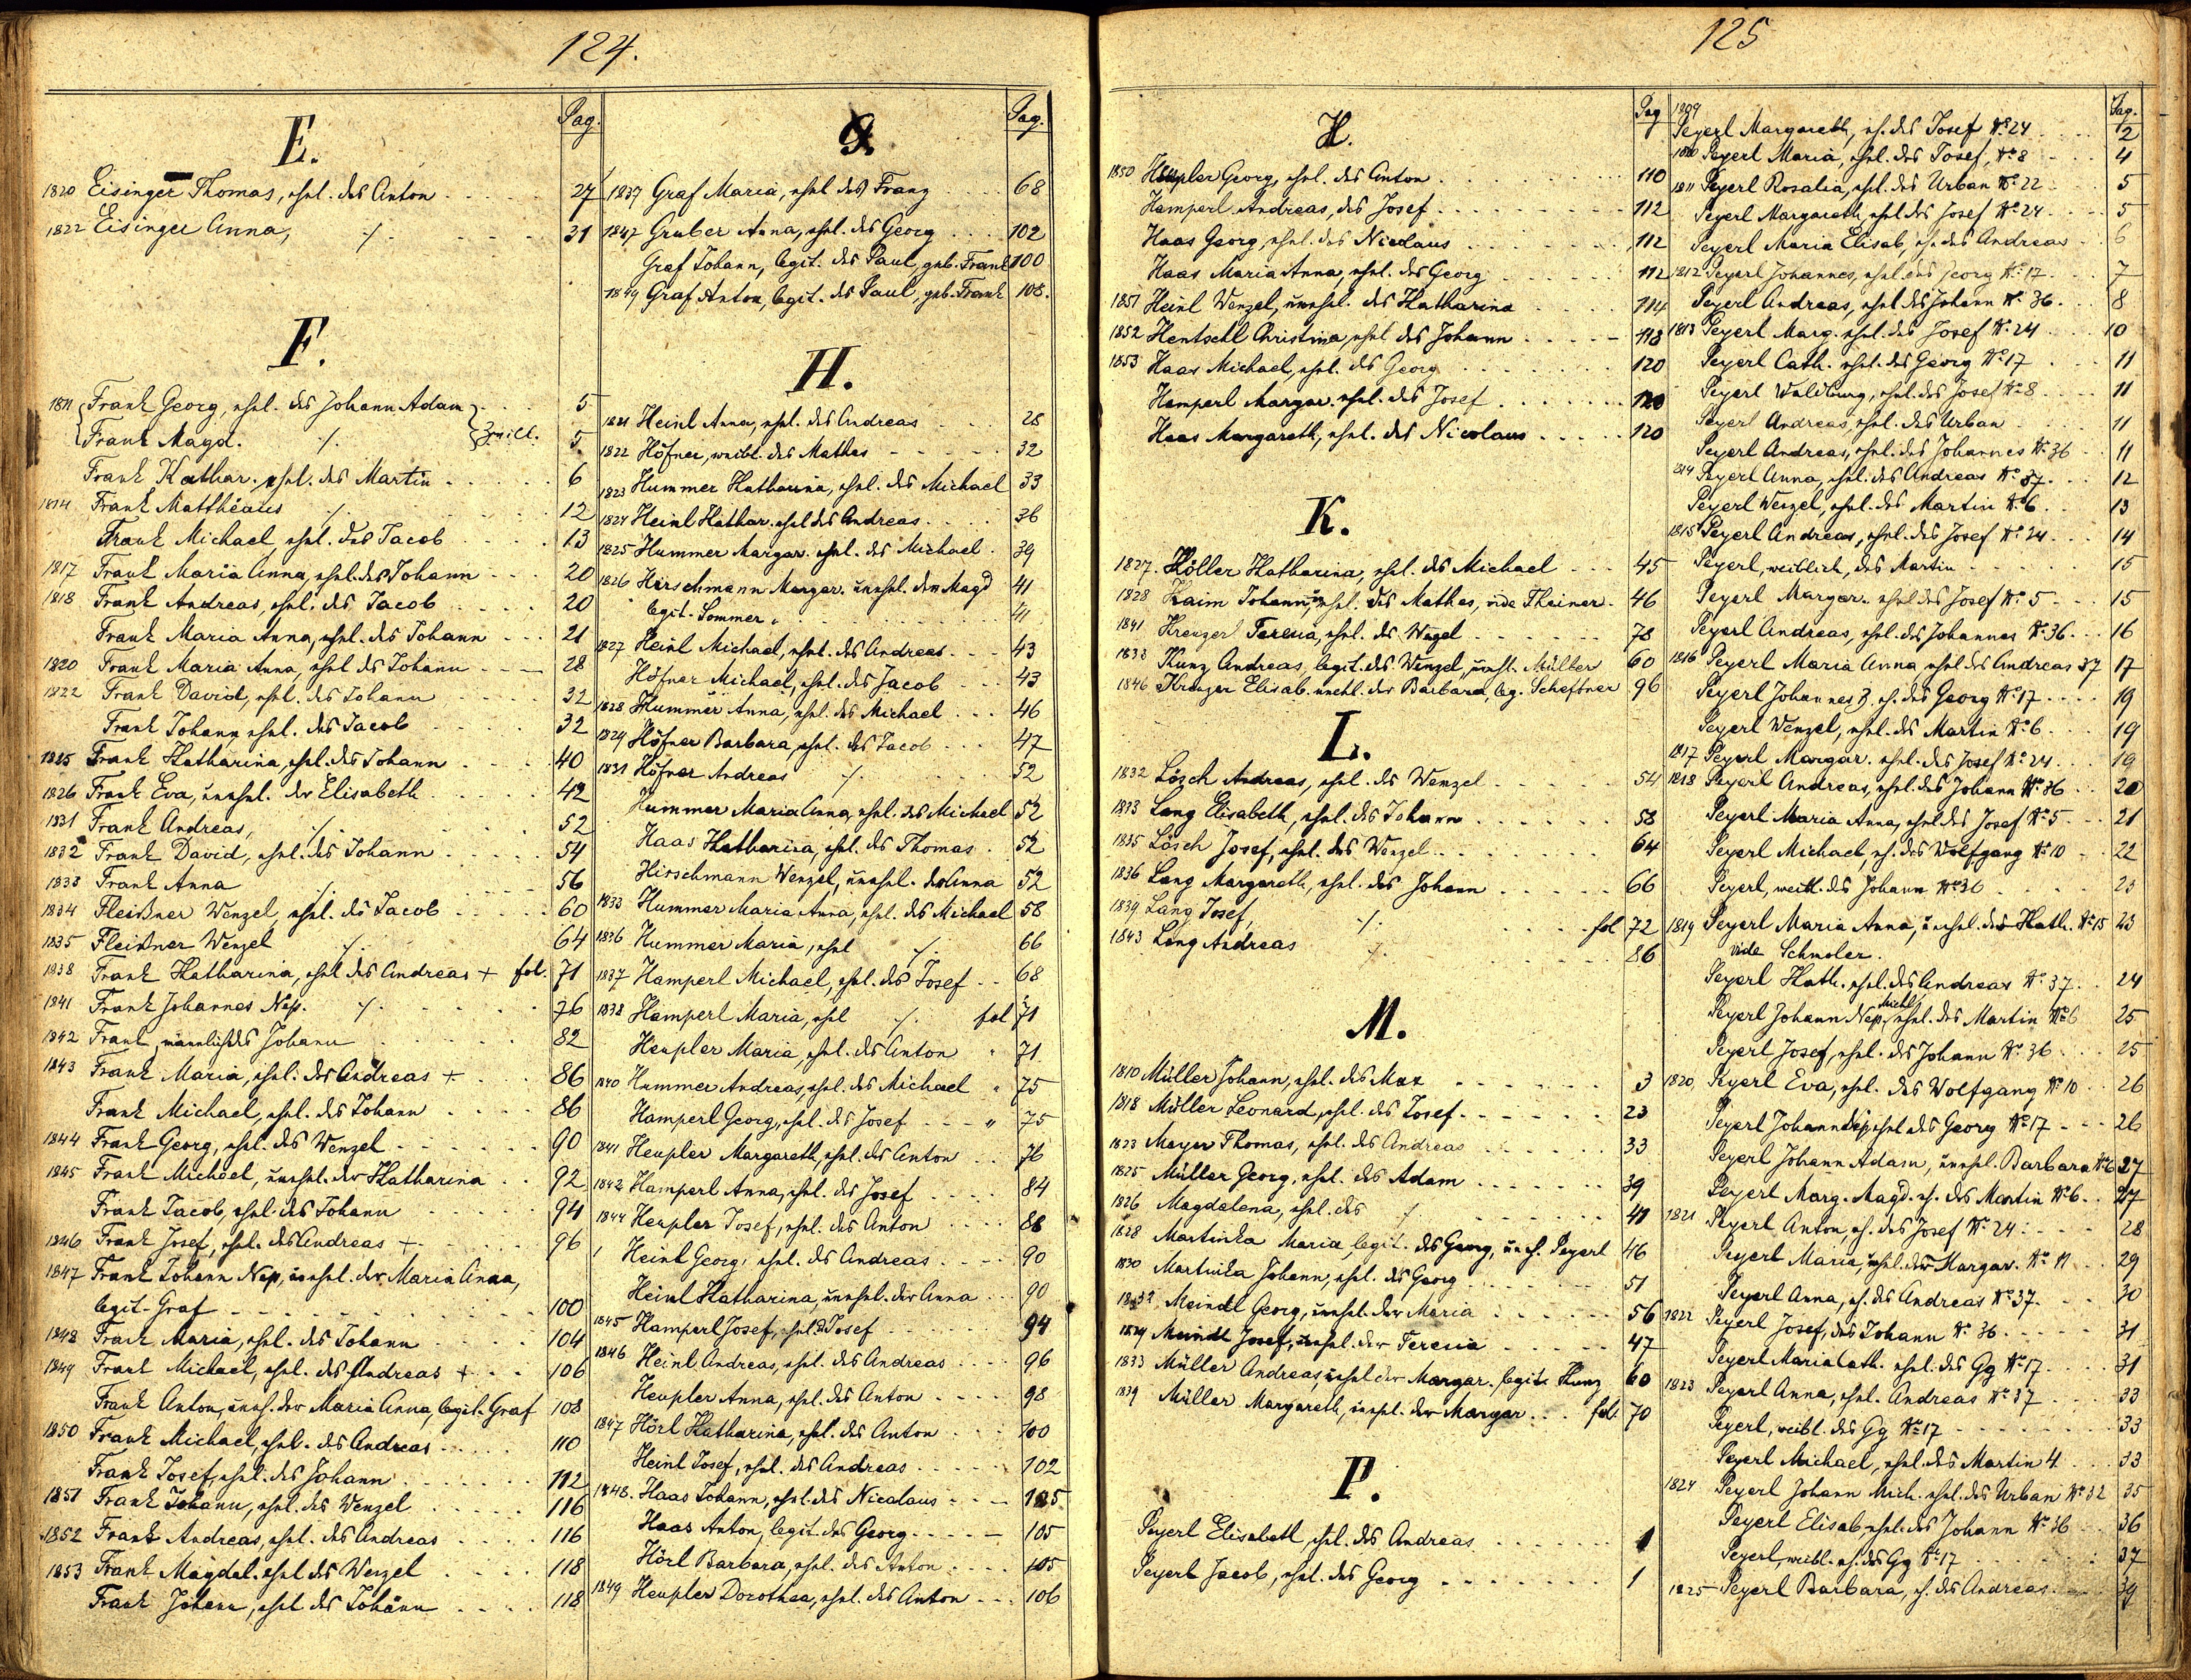 124.
E.
Pag.
1820 Eisinger Thomas, ehel. des Anton 27
1822 Eisinger Anna, ./. 31
F.
1811 Frank Georg, ehel. des Johann Adam } 5
Frank Magd. ./. } Zwill. 5
Frank Kathar. ehel. des Martin 6
1814 Frank Matthëaus ./. 12
Frank Michael ehel. des Jacob 13
1817 Frank Maria Anna, ehel. des Johann 20
1818 Frank Andreas, ehel. des Jacob 20
Frank Maria Anna, ehel. des Johann 21
1820 Frank Maria Anna, ehel des Johann 28
1822 Frank David, ehel. des Johann 32
Frank Johann ehel. des Jacob 32
1825 Frank Katharina, ehel. des Johann 40
1826 Frank Eva, unehel. der Elisabeth 42
1831 Frank Andreas, ./. 52
1832 Frank David, ehel. des Johann 54
1833 Frank Anna ./. 56
1834 Fleißner Wenzel, ehel. des Jacob 60
1835 Fleißner Wenzel ./. 64
1838 Frank Katharina, ehel des Andreas + fol. 71
1841 Frank Johannes Nep. ./. 76
1842 Frank, männlich des Johann 82
1843 Frank Maria, ehel. des Andreas + 86
Frank Michael, ehel. des Johann 86
1844 Frank Georg, ehel. des Wenzel 90
1845 Frank Michael, unehel. der Katharina 92
Frank Jacob, ehel. des Johann 94
1846 Frank Josef, ehel. des Andreas + 96
1847 Frank Johann Nep, unehel. der Maria Anna,
legit. Graf 100
1848 Frank Maria, ehel. des Johann 104
1849 Frank Michael, ehel. des Andreas + 106
Frank Anton, uneh. der Maria Anna, legit. Graf 108
1850 Frank Michael, ehel. des Andreas 110
Frank Josef, ehel. des Johann 112
1851 Frank Johann, ehel. des Wenzel 116
1852 Frank Andreas, ehel. des Andreas 116
1853 Frank Magdal. ehel des Wenzel 118
Frank Johann, ehel des Johann 118
G.
Pag.
1837 Graf Maria, ehel des Franz 68
1847 Gruber Anna, ehel. des Georg 102
Graf Johann, legit. des Paul, geb. Frank 100
1849 Graf Anton, legit. des Paul, geb. Frank 108.
H.
1821 Heinl Anna, ehel. des Andreas 28
1822 Höfner, weibl. des Mathes 32
1823 Hummer Katharina, ehel. des Michael 33
1824 Heinl Kathar. ehel des Andreas 36
1825 Hummer Margar. ehel. des Michael 39
1826 Hirschmann Margar. unehel. der Magd 41
legit. Sommer 41
1827 Heinl Michael, ehel. des Andreas 43
Höfner Michael, ehel. des Jacob 43
1828 Hummer Anna, ehel. des Michael 46
1829 Höfner Barbara, ehel. des Jacob 47
1831 Höfner Andreas ./. 52
Hummer Maria Anna, ehel. des Michael 52
Haas Katharina, ehel. des Thomas 52
Hirschmann Wenzel, unehel. der Anna 52
1833 Hummer Maria Anna, ehel. des Michael 58
1836 Hummer Maria, ehel ./. 66
1837 Hamperl Michael, ehel. des Josef 68
1838 Hamperl Maria, ehel ./. fol 71
Heupler Maria, ehel. des Anton " 71
1840 Hummer Andreas, ehel. des Michael " 75
Hamperl Georg, ehel. des Josef " 75
1841 Heupler Margareth, ehel. des Anton 76
1842 Hamperl Anna, ehel. des Josef 84
1844 Heupler Josef, ehel. des Anton 88
Heinl Georg, ehel. des Andreas 90
Heinl Katharina, unehel. der Anna 90
1845 Hamperl Josef, ehel. d. Josef 94
1846 Heinl Andreas, ehel. des Andreas 96
Heupler Anna, ehel. des Anton 98
1847 Hörl Katharina, ehel. des Anton 100
Heinl Josef, ehel. des Andreas 102
1848. Haas Johann, ehel. des Nicolaus 105
Haas Anton, legit. des Georg 105
Hörl Barbara, ehel. des Anton 105
1849 Heupler Dorothea, ehel. des Anton 106
125
H.
Pag
1850 Heupler Georg, ehel. des Anton 110
Hamperl Andreas, des Josef 112
Haas Georg, ehel. des Nicolaus 112
Haas Maria Anna, ehel. des Georg 112
1851 Heinl Wenzel, unehel. der Katharina 114
1852 Hentschl Christina, ehel des Johann 118
1853 Haas Michael, ehel. des Georg 120
Hamperl Margar. ehel. des Josef 120
Haas Margareth, ehel. des Nicolaus 120
K.
1827. Köller Katharina, ehel. des Michael 45
1828 Kaim Johann, unehel. des Mathes, vide Theiner. 46
1841 Krenzerl Teresia, ehel. des Wenzel 78
1833 Kunz Andreas, legit. des Wenzel, unehl. Müller 60
1846 Krenzer Elisab. unehl. der Barbara, leg. Scheffner 96
L.
1832 Lösch Andreas, ehel. des Wenzel 54
1833 Lang Elisabeth, ehel. des Johann 58
1835 Lösch Josef, ehel. des Wenzel 64
1836 Lang Margareth, ehel. des Johann 66
1839 Lang Josef, ./. fol 72
1843 Lang Andreas ./. 86
M.
1810 Müller Johann, ehel. des Max 3
1818 Müller Leonard, ehel. des Josef 23
1823 Mayer Thomas, ehel. des Andreas 33
1825 Müller Georg, ehel. des Adam 39
1826 Magdalena, ehel. des ./. 41
1828 Martinka Maria, legit. des Georg, uneh. Peyerl 46
1830 Martinka Johann, ehel. des Georg 51
1832 Meindl Georg, unehel. der Maria 56
1829 Meindl Josef, unehel. der Teresia 47
1833 Müller Andreas, unehel der Margar. legit. Kunz 60
1839 Müller Margareth, unehel. der Margar. fol. 70
P.
Peyerl Elisabeth, ehel. des Andreas 1
Peyerl Jacob, ehel. des Georg 1
Pag.
1809
Peyerl Margareth, eh. des Josef No 24 2
1810 Peyerl Maria, ehel. des Josef, No 8 4
1811 Peyerl Rosalia, ehel. des Urban No 22 5
Peyerl Margareth, ehel des Josef No 24 5
Peyerl Maria Elisab, eh. des Andreas 6
1812 Peyerl Johannes, ehel. des Georg No 17 7
Peyerl Andreas, ehel des Johann No 36. 8
1813 Peyerl Marg. ehel. des Josef No 24 10
Peyerl Cath. ehel. des Georg No 17 11
Peyerl Waldburg, ehel. des Josef No 8 11
Peyerl Andreas, ehel. des Urban 11
Peyerl Andreas, ehel. des Johannes No 36 11
1814 Peyerl Anna, ehel. des Andreas No 37. 12
Peyerl Wenzel, ehel. des Martin No 6 13
1815 Peyerl Andreas, ehel. des Josef No 24 14
Peyerl, weiblich, des Martin 15
Peyerl Margar. ehel des Josef No 5 15
Peyerl Andreas, ehel. des Johannes No 36 16
1816 Peyerl Maria Anna, ehel des Andreas 37 17
Peyerl Johannes B. eh. des Georg No 17 19
Peyerl Wenzel, ehel. des Martin No 6 19
1817 Peyerl Margar. ehel. des Josef No 24 19
1818 Peyerl Andreas, ehel. des Johann No 36 20
Peyerl Maria Anna, ehel des Josef No 5 21
Peyerl Michael, eh. des Wolfgang No 10 22
Peyerl, weibl. des Johann No 36 23
1819 Peyerl Maria Anna, unehel. der Kath. No 15 23
vide Schmoler.
Peyerl Kath. ehel. des Andreas No 37 24
Peyerl Johann Nep. Michl, ehel. des Martin No 6 25
Peyerl Josef, ehel. des Johann No 36 25
1820, Peyerl Eva, ehel. des Wolfgang No 10 26
Peyerl Johann Nep, ehel des Georg No 17 26
Peyerl Johann Adam, unehel. Barbara No 6 27
Peyerl Marg. Magd. eh. des Martin No 6. 27
1821 Peyerl Anton, eh. des Josef No 24. 28
Peyerl Maria, unehel. der Margar. No 11 29
Peyerl Anna, eh. des Andreas No 37. 30
1822 Peyerl Josef, des Johann No 36 31
Peyerl Maria Cath. ehel. des Gg No 17 31
1823 Peyerl Anna, ehel. Andreas No 37 33
Peyerl, weibl. des Gg No 17 33
Peyerl Michael, ehel. des Martin 4 33
1824 Peyerl Johann Mich. ehel. des Urban No 32 35
Peyerl Elisab, ehel. des Johann No 36 36
Peyerl, weibl. eh. des Gg No 17 37
1825 Peyerl Barbara, eh. des Andreas. 39